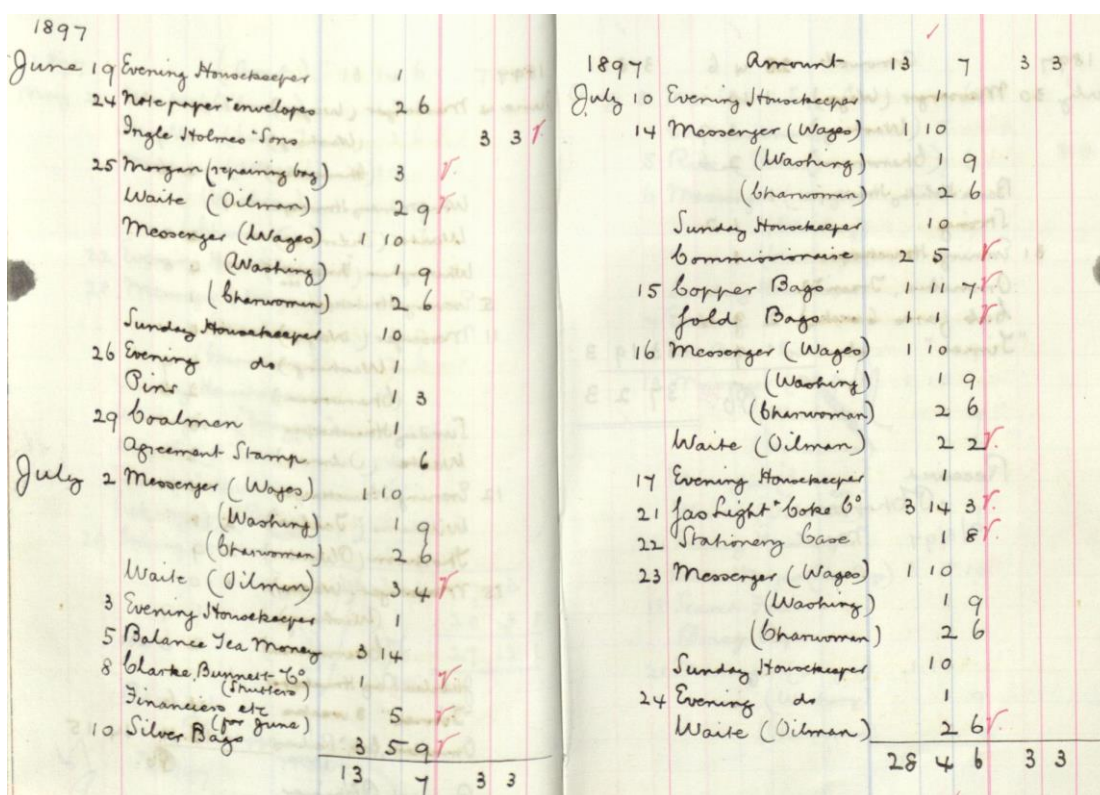 1897
June 19 Evening Housekeeper 1
24 Note paper & envelopes 2 6
Ingle Holmes & Sons 3 3
25 Morgan (repairing bag) 3
Waite (Oilman) 2 9
Messenger (Wages) 1 10
(Washing) 1 9
(Charwoman) 2 6
Sunday Housekeeper 10
26 Evening do 1
Pins 1 3
29 Coalmen 1
Agreement Stamp 6
July 2 Messenger (Wages) 1 10
(Washing) 1 9
(Charwoman) 2 6
Waite (Oilman) 3 4
3 Evening Housekeeper 1
5 Balance Tea Money 3 14
8 Clarke, Bunnett & Co (Shutters) 1
Financiers etc (for June) 5
10 Silver Bags 3 5 9
13 7 3 3
1897 Amount 13 7 3 3
July 10 Evening Housekeeper 1
14 Messenger (Wages) 1 10
(Washing) 1 9
(Charwoman) 2 6
Sunday Housekeeper 10
Commissionaire 2 5
15 Copper Bags 1 11 7
Gold Bags 1 1
16 Messenger (Wages) 1 10
(Washing) 1 9
(Charwoman) 2 6
Waite (Oilman) 2 2
17 Evening Housekeeper 1
21 Gas Light & Coke Co 3 14 3
22 Stationery Case 1 8
23 Messenger (Wages) 1 10
(Washing) 1 9
(Charwoman) 2 6
Sunday Housekeeper 10
24 Evening do 1
Waite (Oilman) 2 6
28 4 6 3 3